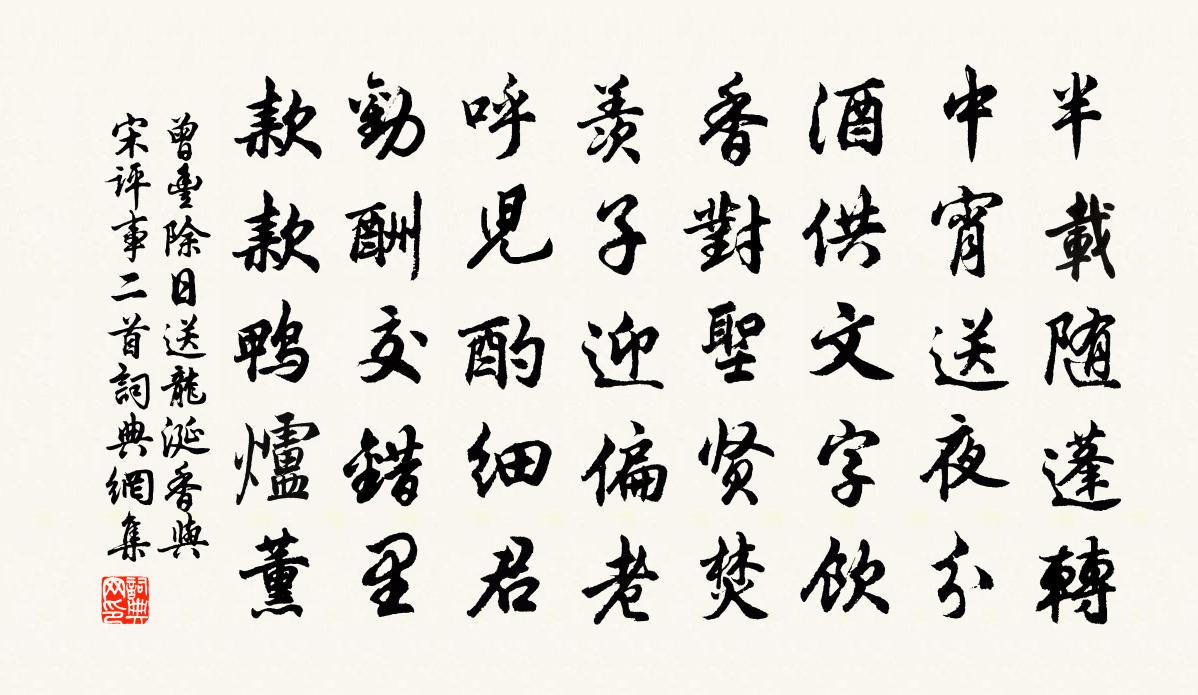 半載随蓬轉
中宵送夜分
酒供文字飲
香對聖贤焚
羨子迎偏老
呼児酌細君
勸酬交錯里
款款鴨爐薰
曾豊除日送龍涎香與
宋評事二首詞典網集
詞典
网印